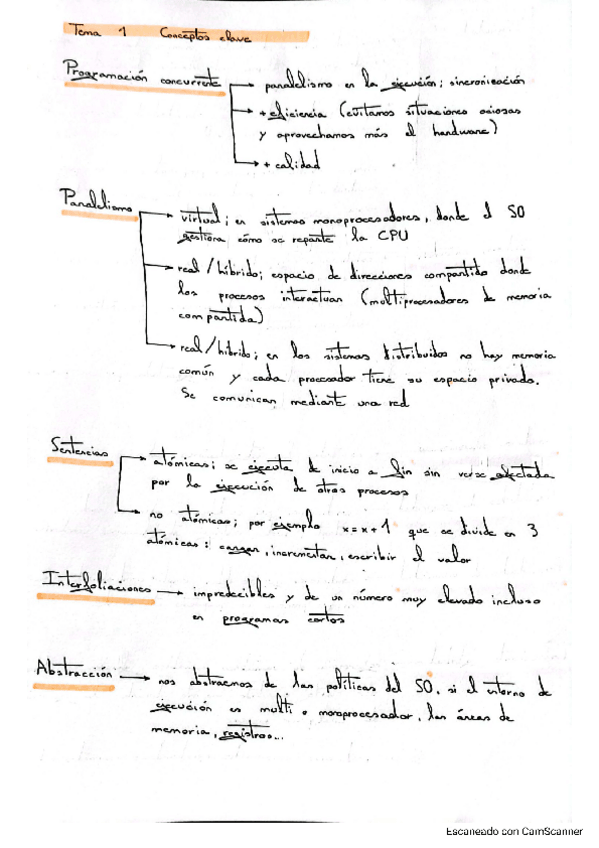 Tema 1 Conceptos clave
Programación concurrente → paralelismo en la ejecución; sincronización
→ + eficiencia (evitamos situaciones ociosas
y aprovechamos más el hardware)
→ + calidad
Paralelismo → virtual; en sistemas monoprocesadores, donde el SO
gestiona cómo se reparte la CPU
→ real / híbrido; espacio de direcciones compartido donde
los procesos interactuan (multiprocesadores de memoria
compartida)
→ real / híbrido; en los sistemas distribuidos no hay memoria
común y cada procesador tiene su espacio privado.
Se comunican mediante una red
Sentencias → atómicas; se ejecuta de inicio a fin sin verse afectada
por la ejecución de otros procesos
→ no atómicas; por ejemplo x=x+1 que se divide en 3
atómicas: cargar, incrementar, escribir el valor
Interfoliaciones → impredecibles y de un número muy elevado incluso
en programas cortos
Abstracción → nos abstraemos de las políticas del SO, si el entorno de
ejecución es multi o monoprocesador, las áreas de
memoria, registros...
Escaneado con CamScanner